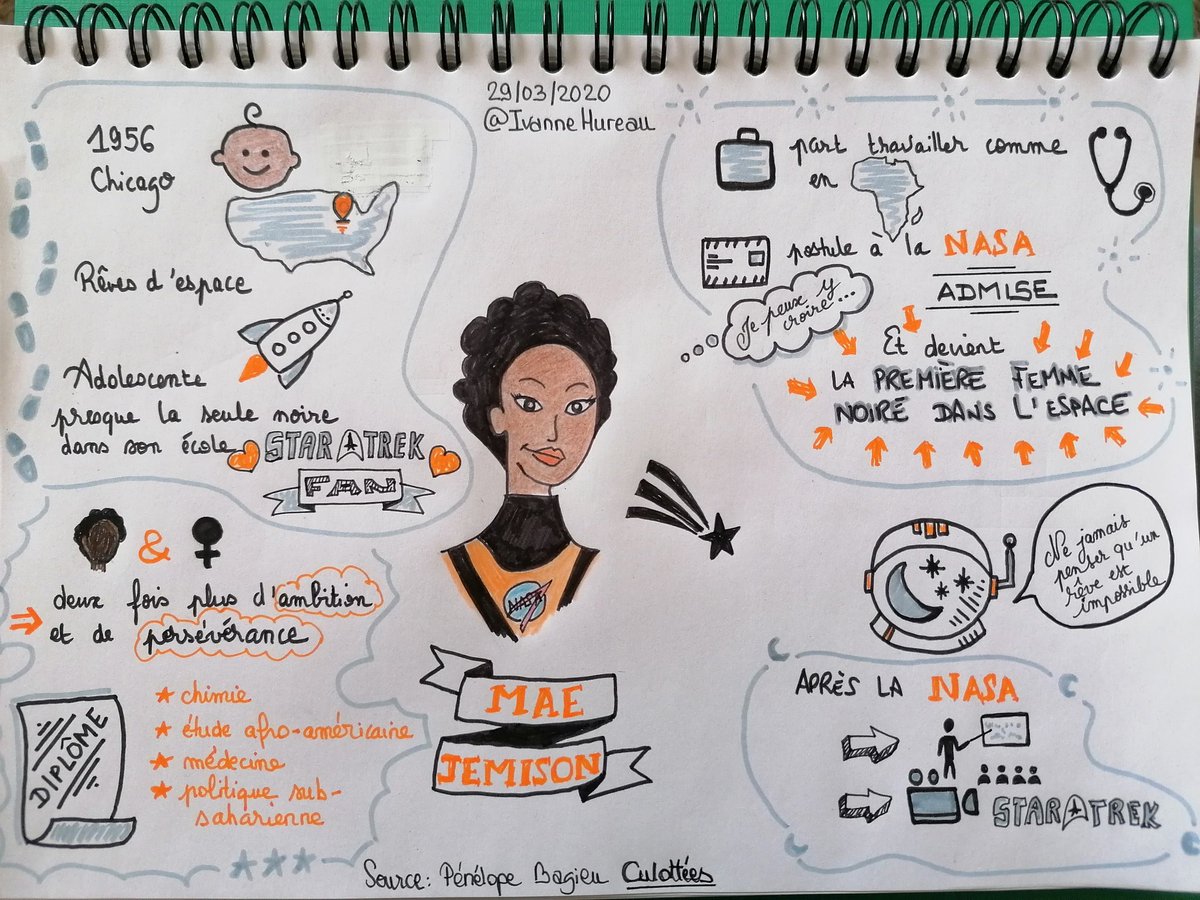 29/03/2020
@IvanneHureau
1956
Chicago
Rêves d'espace
Adolescente
presque la seule noire
dans son école
STAR TREK
FAN
&
deux fois plus d'ambition
et de persévérance
DIPLÔME
chimie
étude afro-américaine
médecine
politique sub-
saharienne
NASA
MAE
JEMISON
part travailler comme
en
postule à la NASA
ADMISE
Je peux y
croire...
Et devient
LA PREMIÈRE FEMME
NOIRE DANS L'ESPACE
Ne jamais
penser qu'un
rêve est
impossible
APRÈS LA NASA
STAR TREK
Source: Pénélope Bagieu Culottées